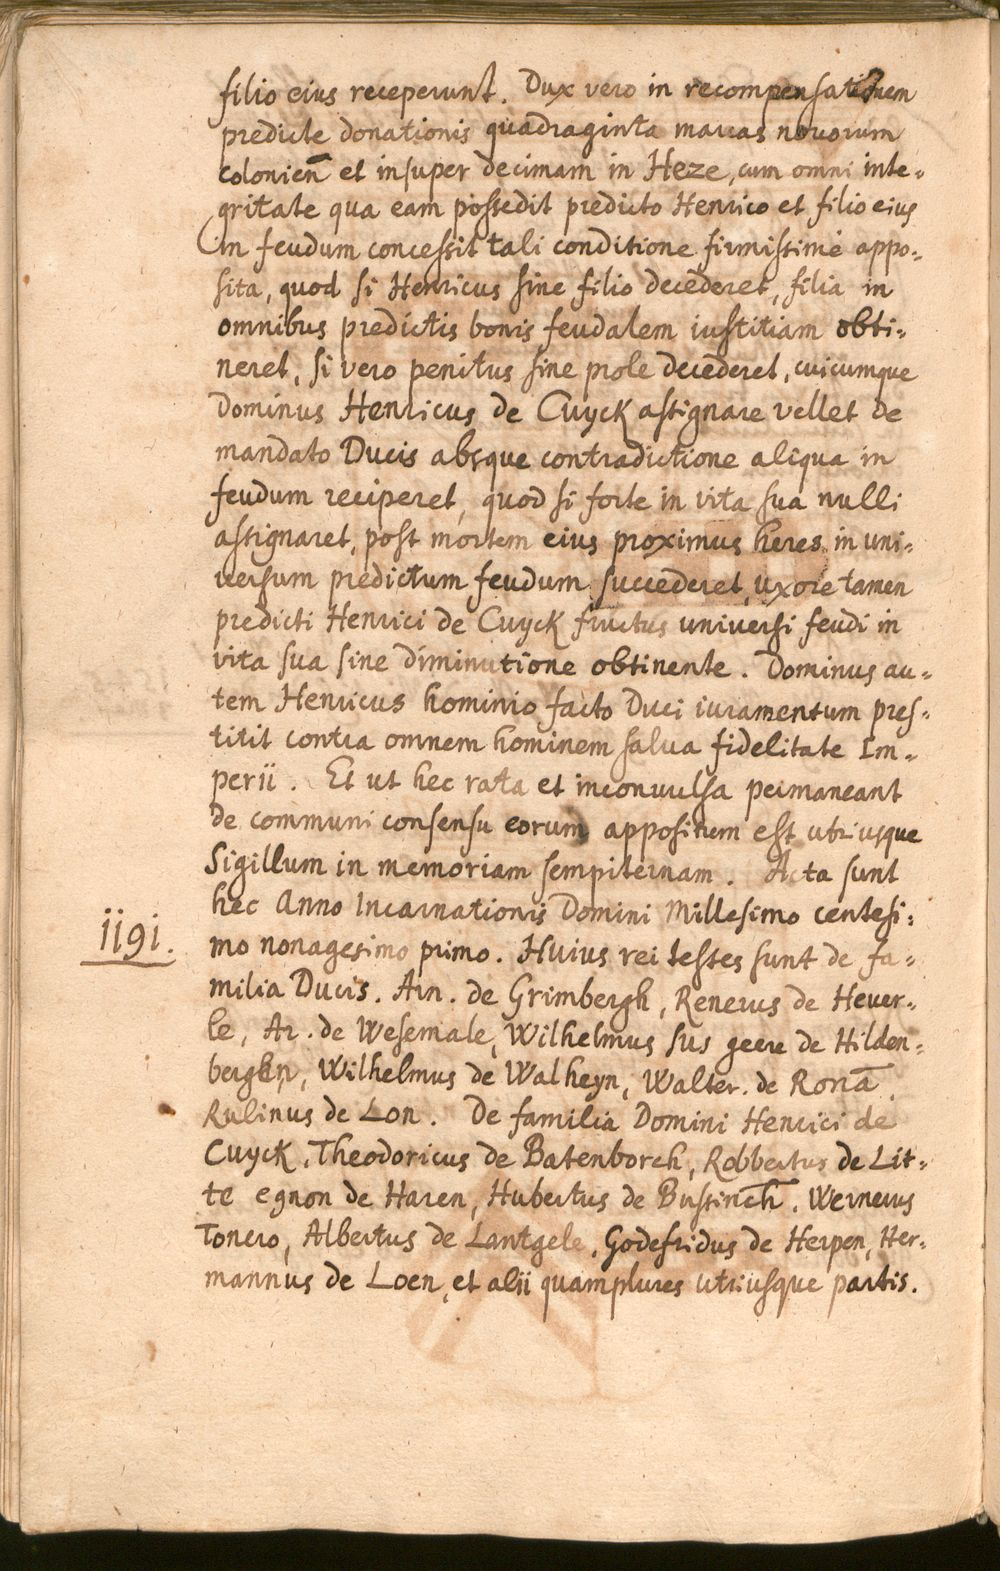 filio eius receperunt. Dux vero in recompensationem
predicte donationis quadraginta marcas novorum
colonien̄ et insuper decimam in Heze, cum omni inte-
gritate qua eam possedit predicto Henrico et filio eius
in feudum concessit tali conditione firmissime appo-
sita, quod si Henricus sine filio decederet, filia in
omnibus predictis bonis feudalem iustitiam obti-
neret, si vero penitus sine prole decederet, cuicumque
Dominus Henricus de Cuyck assignare vellet de
mandato Ducis absque contradictione aliqua in
feudum reciperet, quod si forte in vita sua nulli
assignaret, post mortem eius proximus heres in uni-
versum predictum feudum succederet, uxore tamen
predicti Henrici de Cuyck fructus universi feudi in
vita sua sine diminutione obtinente. Dominus au-
tem Henricus hominio facto Duci iuramentum pres-
titit contra omnem hominem salva fidelitate Im-
perii. Et ut hec rata et inconvulsa permaneant
de communi consensu eorum appositum est utriusque
Sigillum in memoriam sempiternam. Acta sunt
hec Anno Incarnationis Domini Millesimo centesi-
1191.
mo nonagesimo primo. Huius rei testes sunt de fa-
milia Ducis. Arn. de Grimbergh, Renerus de Hever-
le, Ar. de Wesemale, Wilhelmus sus geere de Hilden-
berghen, Wilhelmus de Walheyn, Walter. de Roñā
Rulinus de Lon. De familia Domini Henrici de
Cuyck, Theodoricus de Batenborch, Robbertus de Lit-
te egnon de Haren, Hubertus de Bussinch̄. Wernerus
Tonero, Albertus de Lantgele, Godefridus de Herpen, Her-
mannus de Loen, et alii quamplures utriusque partis.